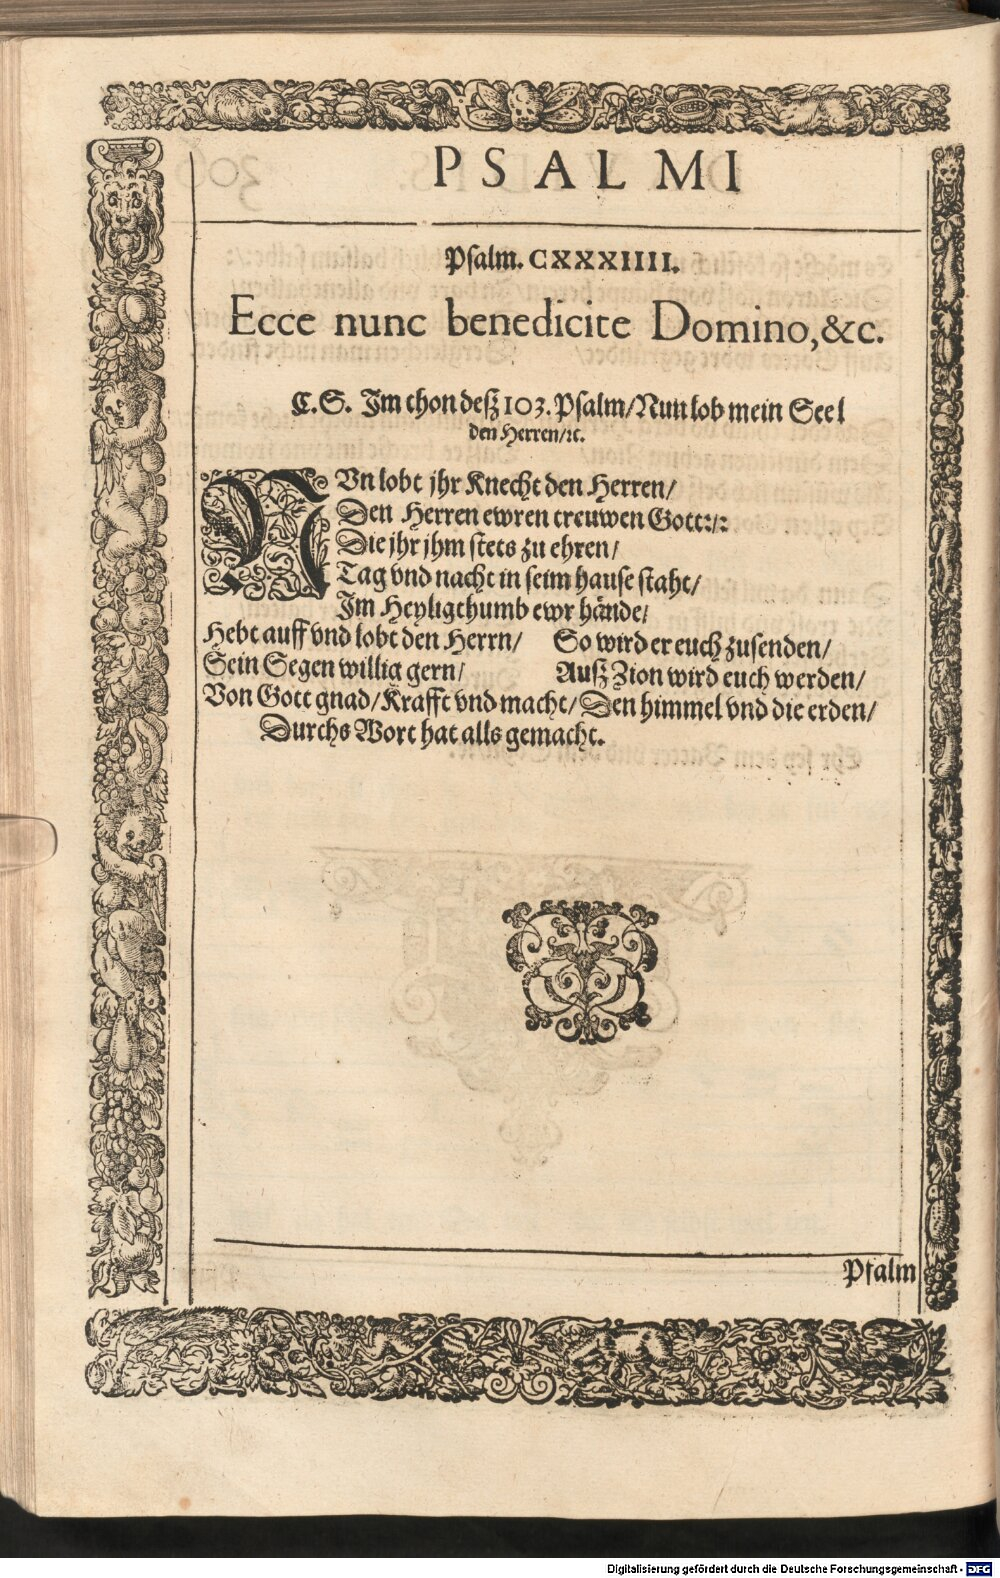 PSALMI
Psalm. CXXXIIII.
Ecce nunc benedicite Domino, &c.
C. S. Im thon deß 103. Psalm/Nun lob mein Seel
den Herren/ꝛc.
NUn lobt jhr Knecht den Herren/
Den Herren ewren treuwen Gott:/:
Die jhr jhm stets zu ehren/
Tag vnd nacht in seim hause staht/
Im Heyligthumb ewr hände/
Hebt auff vnd lobt den Herrn/
Sein Segen willig gern/
Von Gott gnad/Krafft vnd macht/
So wird er euch zusenden/
Auß Zion wird euch werden/
Den himmel vnd die erden/
Durchs Wort hat alls gemacht.
Psalm
Digitalisierung gefördert durch die Deutsche Forschungsgemeinschaft - DFG